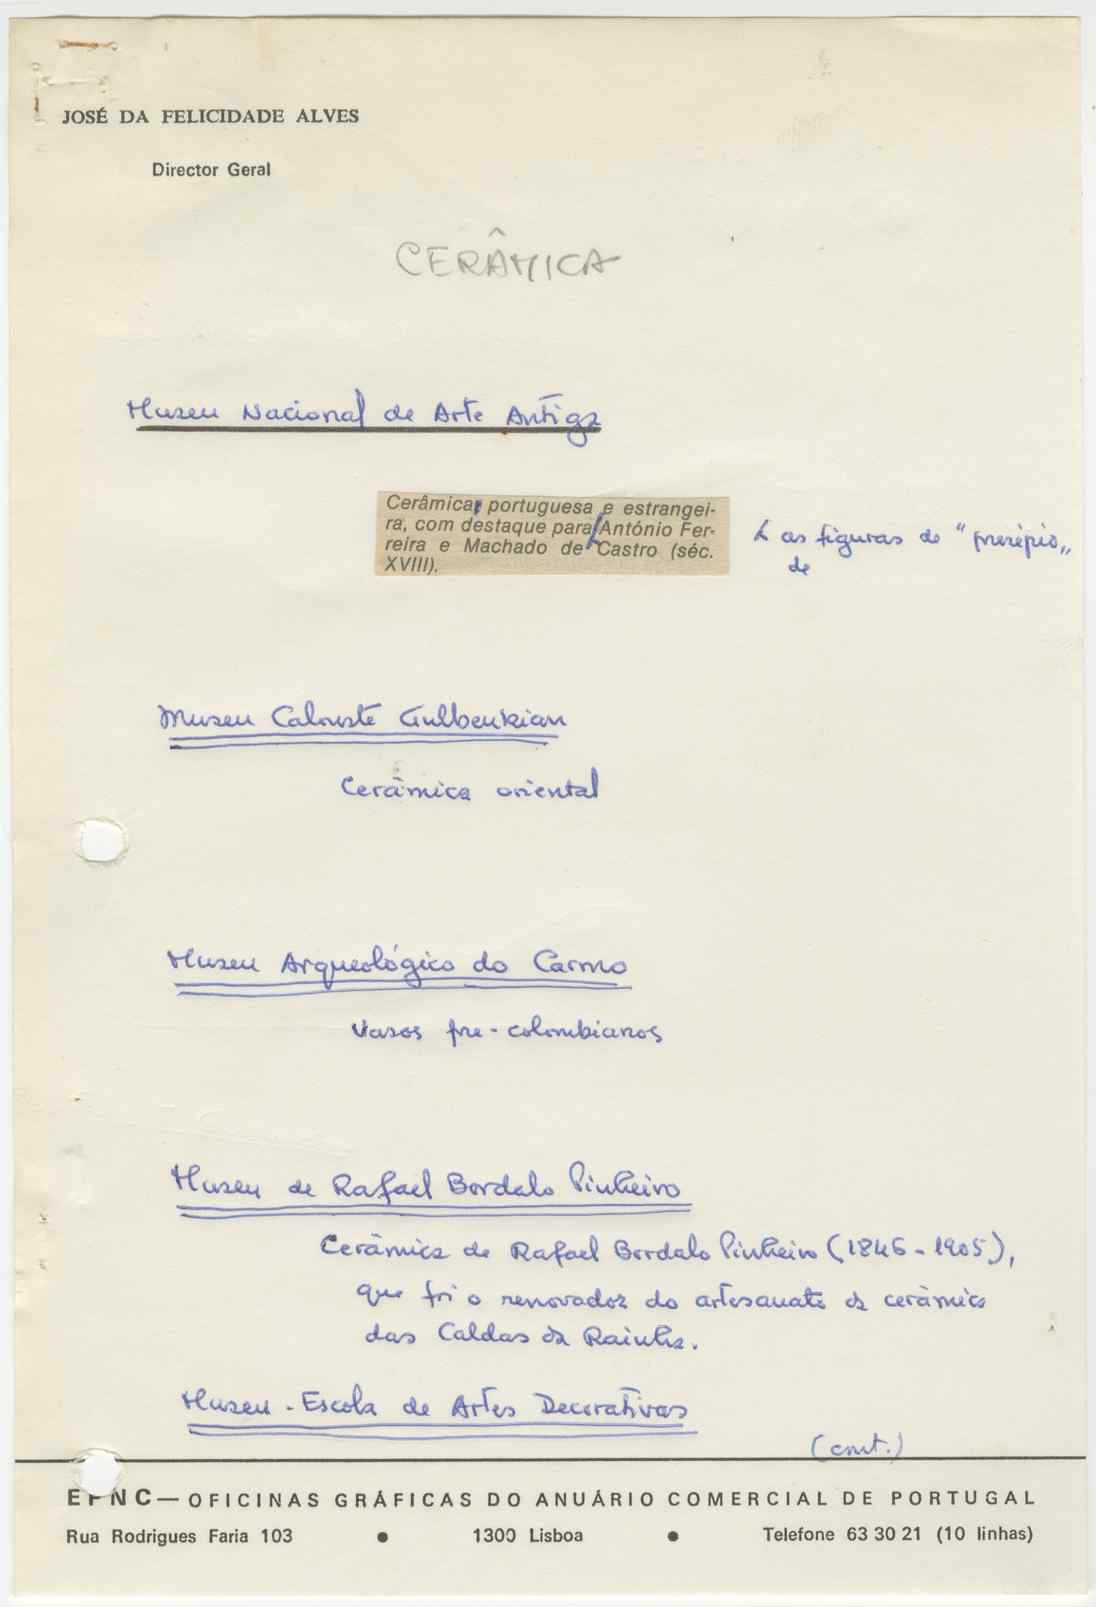 JOSÉ DA FELICIDADE ALVES
Director Geral
CERÂMICA
Museu Nacional de Arte Antiga
Cerâmica, portuguesa e estrangei-
ra, com destaque para António Fer-
reira e Machado de Castro (séc.
XVIII).
as figuras de "presépio"
de
Museu Calouste Gulbenkian
Cerâmica oriental
Museu Arqueológico do Carmo
Vasos pre-colombianos
Museu de Rafael Bordalo Pinheiro
Cerâmica de Rafael Bordalo Pinheiro (1846-1905),
que foi o renovador do artesanato da cerâmica
das Caldas da Rainha.
Museu-Escola de Artes Decorativas
(cont.)
EPNC—OFICINAS GRÁFICAS DO ANUÁRIO COMERCIAL DE PORTUGAL
Rua Rodrigues Faria 103 • 1300 Lisboa • Telefone 63 30 21 (10 linhas)